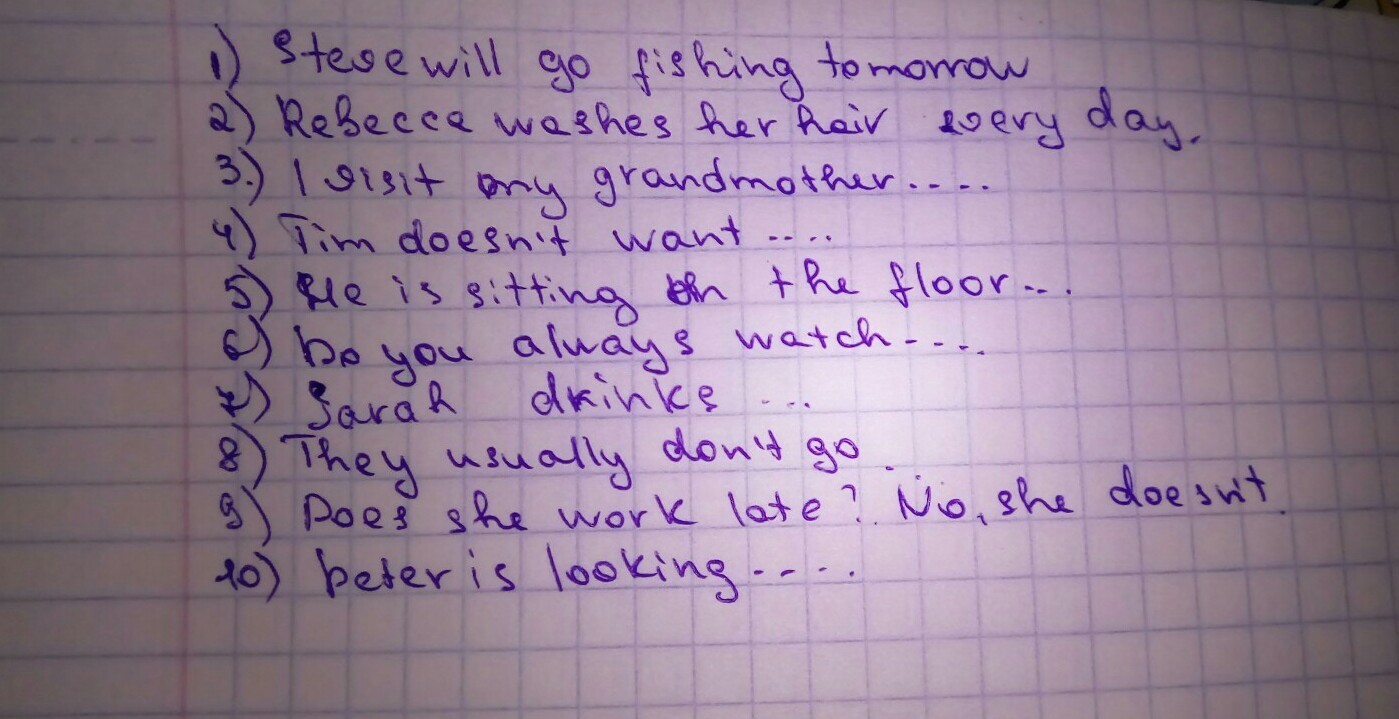 1) Steve will go fishing tomorrow
2) Rebecca washes her hair every day.
3.) I visit my grandmother.....
4) Tim doesn't want ....
5) He is sitting on the floor....
6) Do you always watch.....
7) Sarah drinks ...
8) They usually don't go.
9) Does she work late? No, she doesn't.
10) peter is looking.....